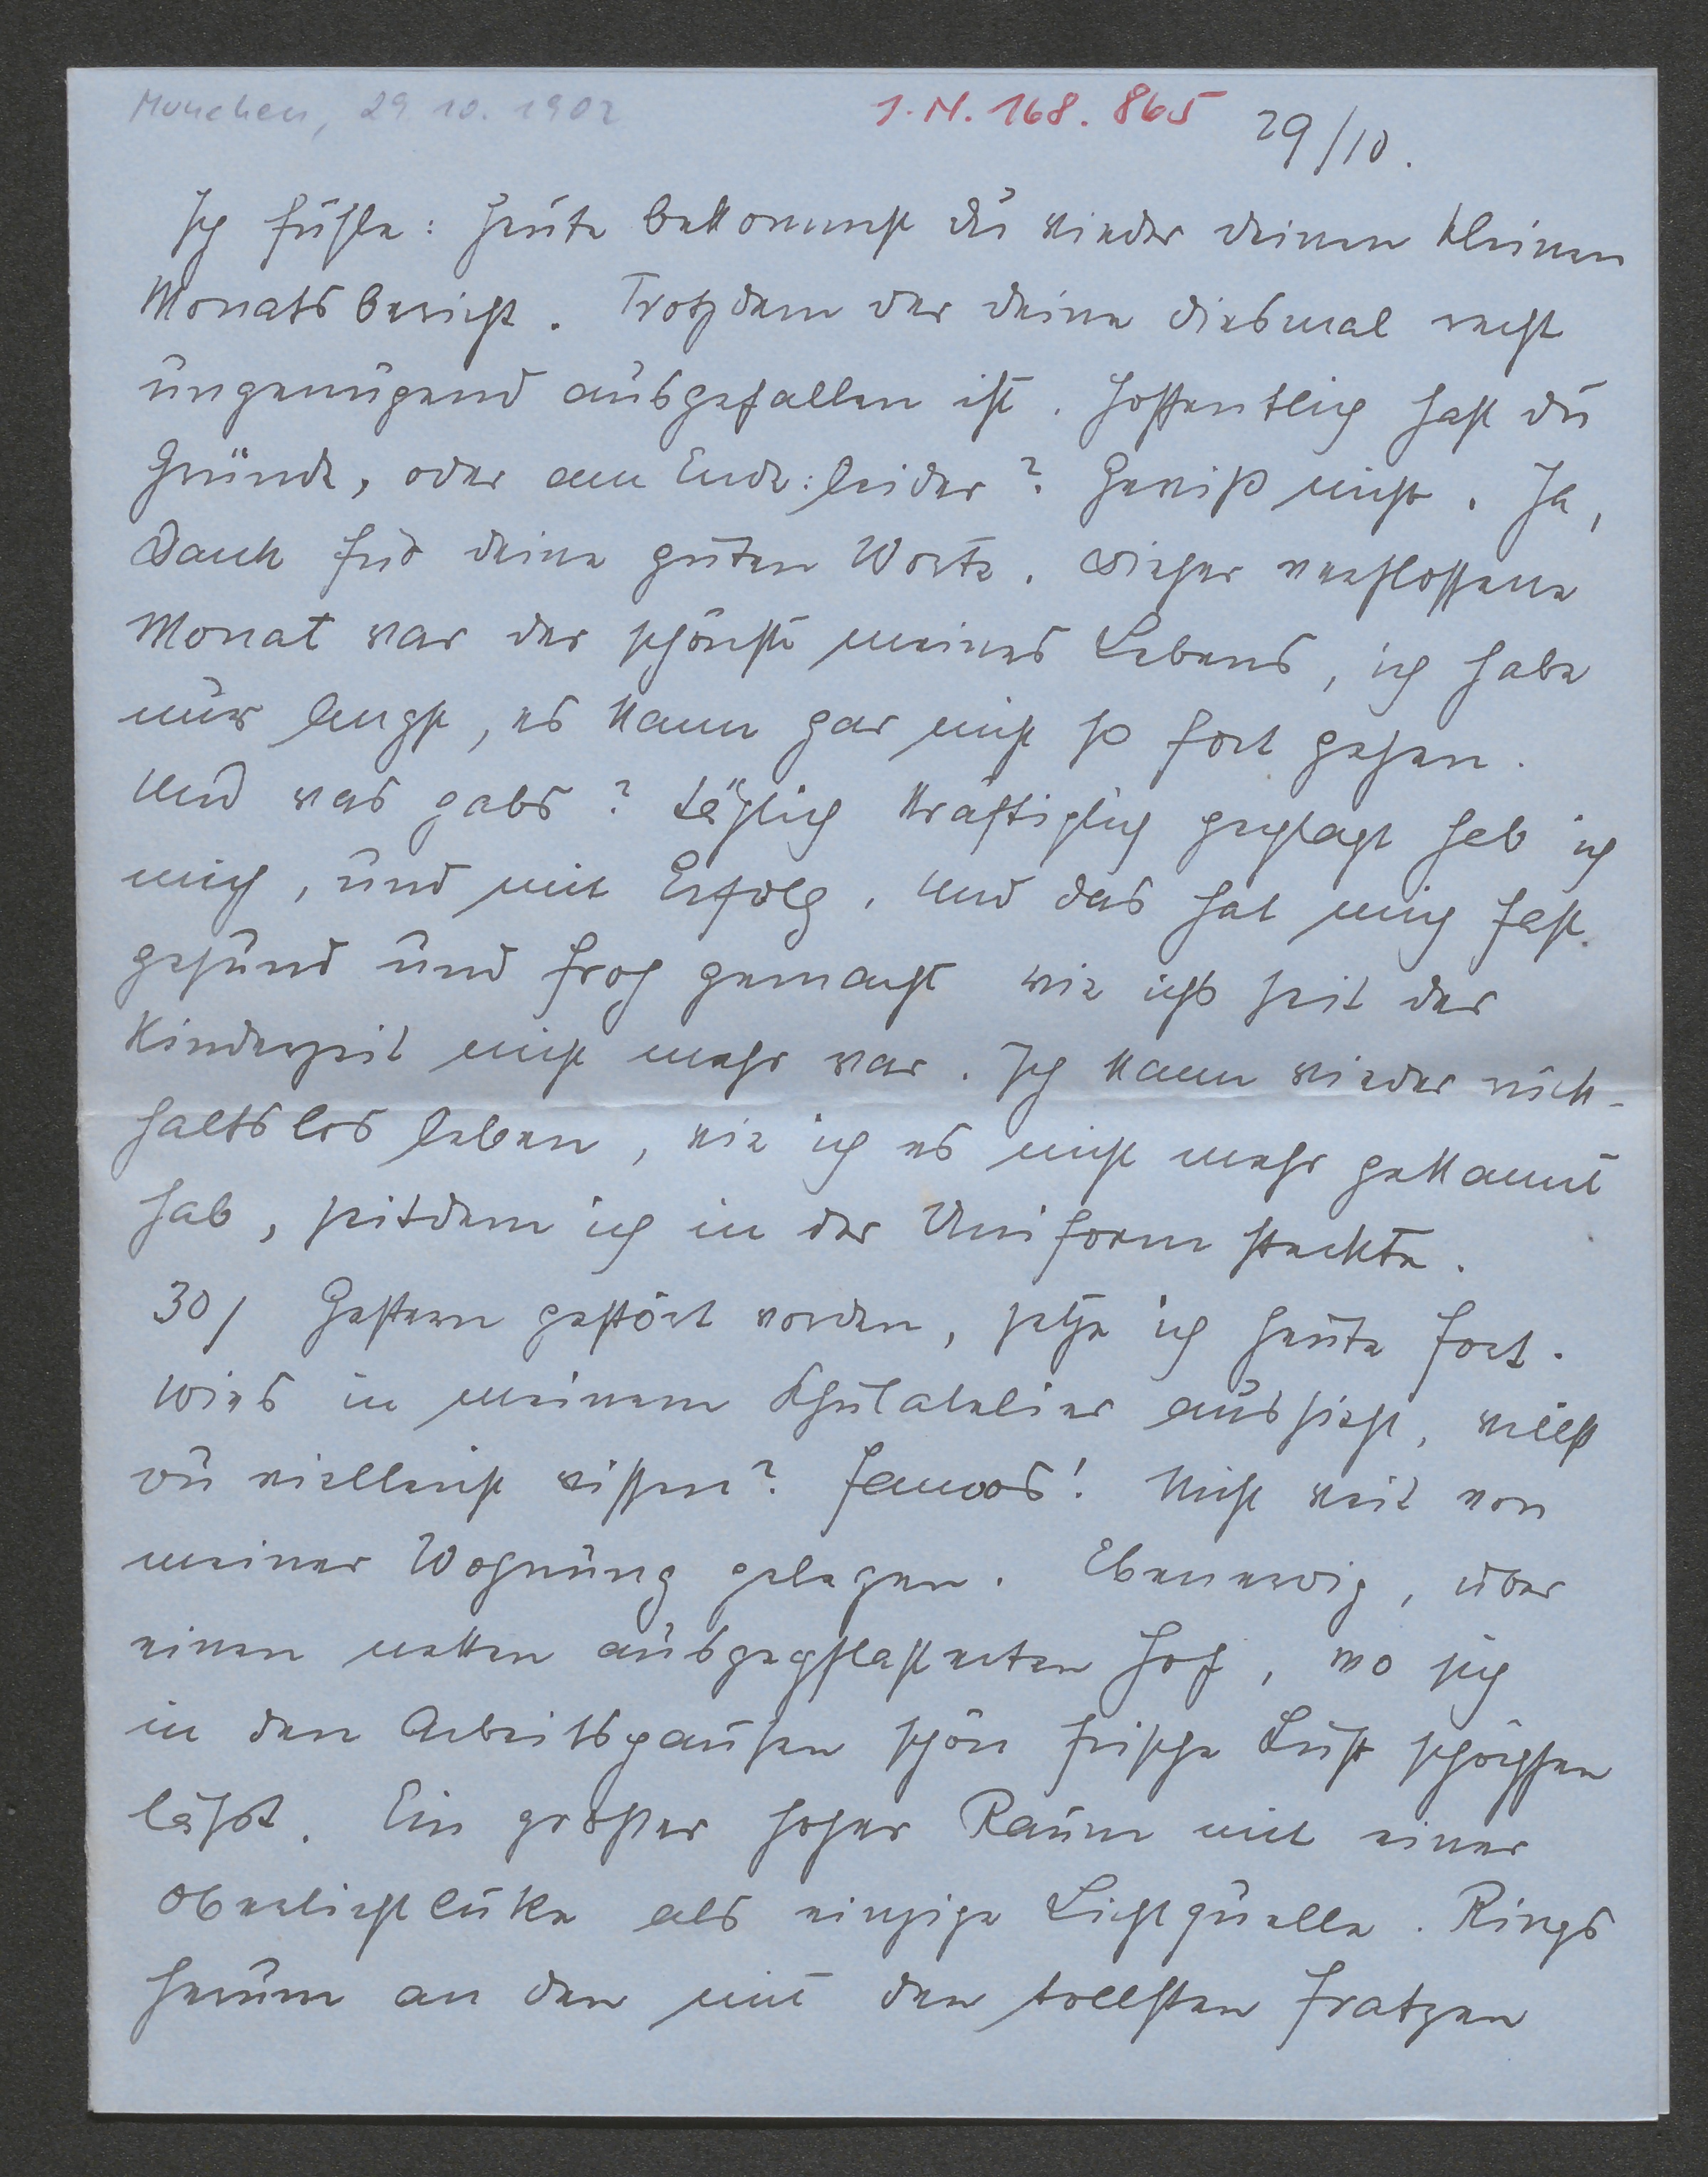 München, 29. 10. 1902
I. N. 168. 865
29/10.
Ich fühle: heute bekommst du wieder deinen kleinen
Monatsbericht. Trotzdem der deine diesmal recht
ungenügend ausgefallen ist. Hoffentlich hast du
Gründe, oder am Ende: leider? Gewiß nicht. Ja,
Dank für deine guten Worte. Dieser verflossene
Monat war der schönste meines Lebens, ich habe
nur Angst, es kann gar nicht so fort gehen.
Und was gabs? Täglich kräftiglich geplagt hab ich
mich, und mit Erfolg. Und das hat mich fast
gesund und froh gemacht wie ichs seit der
Kinderzeit nicht mehr war. Ich kann wieder rück-
haltslos leben, wie ich es nicht mehr gekannt
hab, seitdem ich in der Uniform steckte.
30/ Gestern gestört worden, setze ich heute fort.
Wies in meinem Schulatelier aussieht, willst
du vielleicht wissen? Famos! Nicht weit von
meiner Wohnung gelegen. Ebenerdig, über
einen netten ausgepflasterten Hof, wo sich
in den Arbeitspausen schön frische Luft schöpfen
läßt. Ein großer hoher Raum mit einer
Oberlichtluke als einzige Lichtquelle. Rings
herum an den mit den tollsten Fratzen